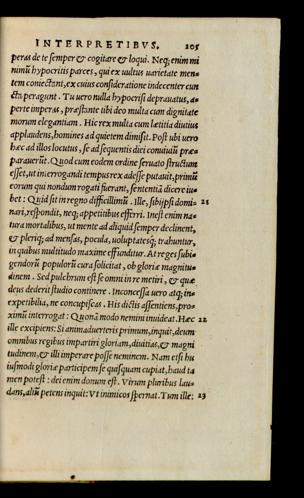 INTERPRETIBVS. 205
peras de te semper & cogitare & loqui. Neq; enim mi
nimũ hypocritis parces, qui ex uultus uarietate men=
tem coniectant, ex cuius consideratione indecenter cun
cta peragunt. Tu uero nulla hypocrisi deprauatus, a=
perte imperas, præstante tibi deo multa cum dignitate
morum elegantiam. Hic rex multa cum lætitia diutius
applaudens, homines ad quietem dimisit. Post ubi uero
hæc ad illos locutus, se ad sequentis diei conuiuiũ præ=
parauerũt. Quod cum eodem ordine seruato structum
esset, ut interrogandi tempus rex adesse putauit, primũ
eorum qui nondum rogati fuerant, sententiã dicere iu=
bet: Quid sit in regno difficillimũ. Ille, sibijpsi domi= 21
nari, respondit, neq; appetitibus efferri. Inest enim na=
tura mortalibus, ut mente ad aliquid semper declinent,
& pleriq; ad mensas, pocula, uoluptatesq; trahuntur,
in quibus multitudo maxime effunditur. At reges subi=
gendorũ populorũ cura solicitat, ob gloriæ magnitu=
dinem. Sed pulchrum est se omni in re metiri, & quæ
deus dederit studio continere. Inconcessa uero atq; in=
expetibilia, ne concupiscas. His dictis assentiens, pro=
ximũ interrogat: Quonã modo nemini inuideat. Hæc 22
ille excipiens: Si animaduerteris primum, inquit, deum
omnibus regibus impartiri gloriam, diuitias, & magni
tudinem, & illi imperare posse neminem. Nam etsi hu
iusmodi gloriæ participem se quisquam cupiat, haud ta
men potest: dei enim donum est. Virum pluribus lau=
dans, aliũ petens inquit: Vt inimicos spernat. Tum ille: 23